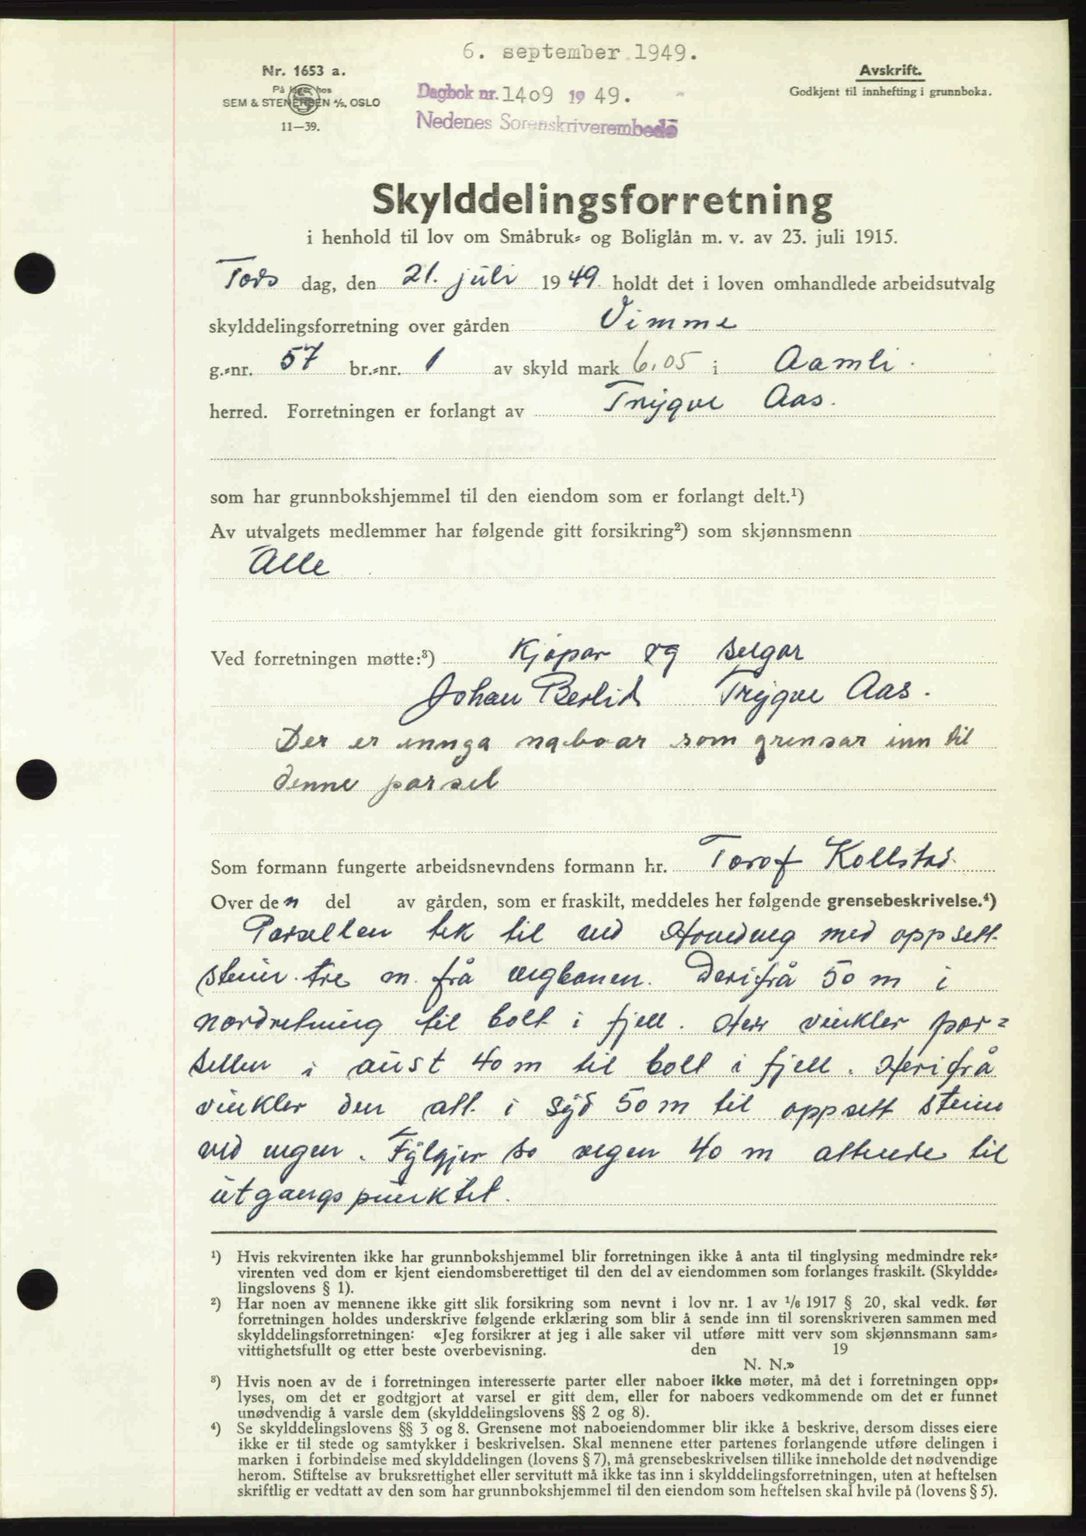 6. september 1949.
Nr. 1653 a.
På lager hos
SEM & STENERSEN A/S, OSLO
11—39.
Dagbok nr. 1409 1949.
Nedenes Sorenskriverembede
Avskrift.
Godkjent til innhefting i grunnboka.
Skylddelingsforretning
i henhold til lov om Småbruk- og Boliglån m. v. av 23. juli 1915.
Tors dag, den 21. juli 1949 holdt det i loven omhandlede arbeidsutvalg
skylddelingsforretning over gården Vimme
g.-nr. 57 br.-nr. 1 av skyld mark 6,05 i Aamli.
herred. Forretningen er forlangt av Trygve Aas.
som har grunnbokshjemmel til den eiendom som er forlangt delt.¹)
Av utvalgets medlemmer har følgende gitt forsikring²) som skjønnsmenn
Alle
Ved forretningen møtte:³) Kjøpar og selgar
Johan Berlid Trygve Aas.
Der er innga naboar som grensar inn til
denne parsel
Som formann fungerte arbeidsnevndens formann hr. Torof Kollstad.
Over den del av gården, som er fraskilt, meddeles her følgende grensebeskrivelse.⁴)
Parsellen tek til ved Hovedveg med oppsett
stein tre m. frå vegbanen. Derifrå 50 m i
nordretning til bolt i fjell. Her vinkler par=
sellen i aust 40 m til bolt i fjell. Herifrå
vinkler den att i syd 50 m til oppsett stein
ved vegen. Fylgjer so vegen 40 m attende til
utgangspunktet.
¹) Hvis rekvirenten ikke har grunnbokshjemmel blir forretningen ikke å anta til tinglysing medmindre rek-
virenten ved dom er kjent eiendomsberettiget til den del av eiendommen som forlanges fraskilt. (Skyldde-
lingslovens § 1).
²) Har noen av mennene ikke gitt slik forsikring som nevnt i lov nr. 1 av 1/6 1917 § 20, skal vedk. før
forretningen holdes underskrive følgende erklæring som blir å sende inn til sorenskriveren sammen med
skylddelingsforretningen: «Jeg forsikrer at jeg i alle saker vil utføre mitt verv som skjønnsmann sam-
vittighetsfullt og etter beste overbevisning. den 19
N. N.»
³) Hvis noen av de i forretningen interesserte parter eller naboer ikke møter, må det i forretningen opp-
lyses, om det er godtgjort at varsel er gitt dem, eller for naboers vedkommende om det er funnet
unødvendig å varsle dem (skylddelingslovens §§ 2 og 8).
⁴) Se skylddelingslovens §§ 3 og 8. Grensene mot naboeiendommer blir ikke å beskrive, dersom disses eiere
ikke er til stede og samtykker i beskrivelsen. Skal mennene etter partenes forlangende utføre delingen i
marken i forbindelse med skylddelingen (lovens § 7), må grensebeskrivelsen tillike inneholde det nødvendige
herom. Stiftelse av bruksrettighet eller servitutt må ikke tas inn i skylddelingsforretningen, uten at heftelsen
skriftlig er vedtatt av den som har grunnbokshjemmel til den eiendom som heftelsen skal hvile på (lovens § 5).